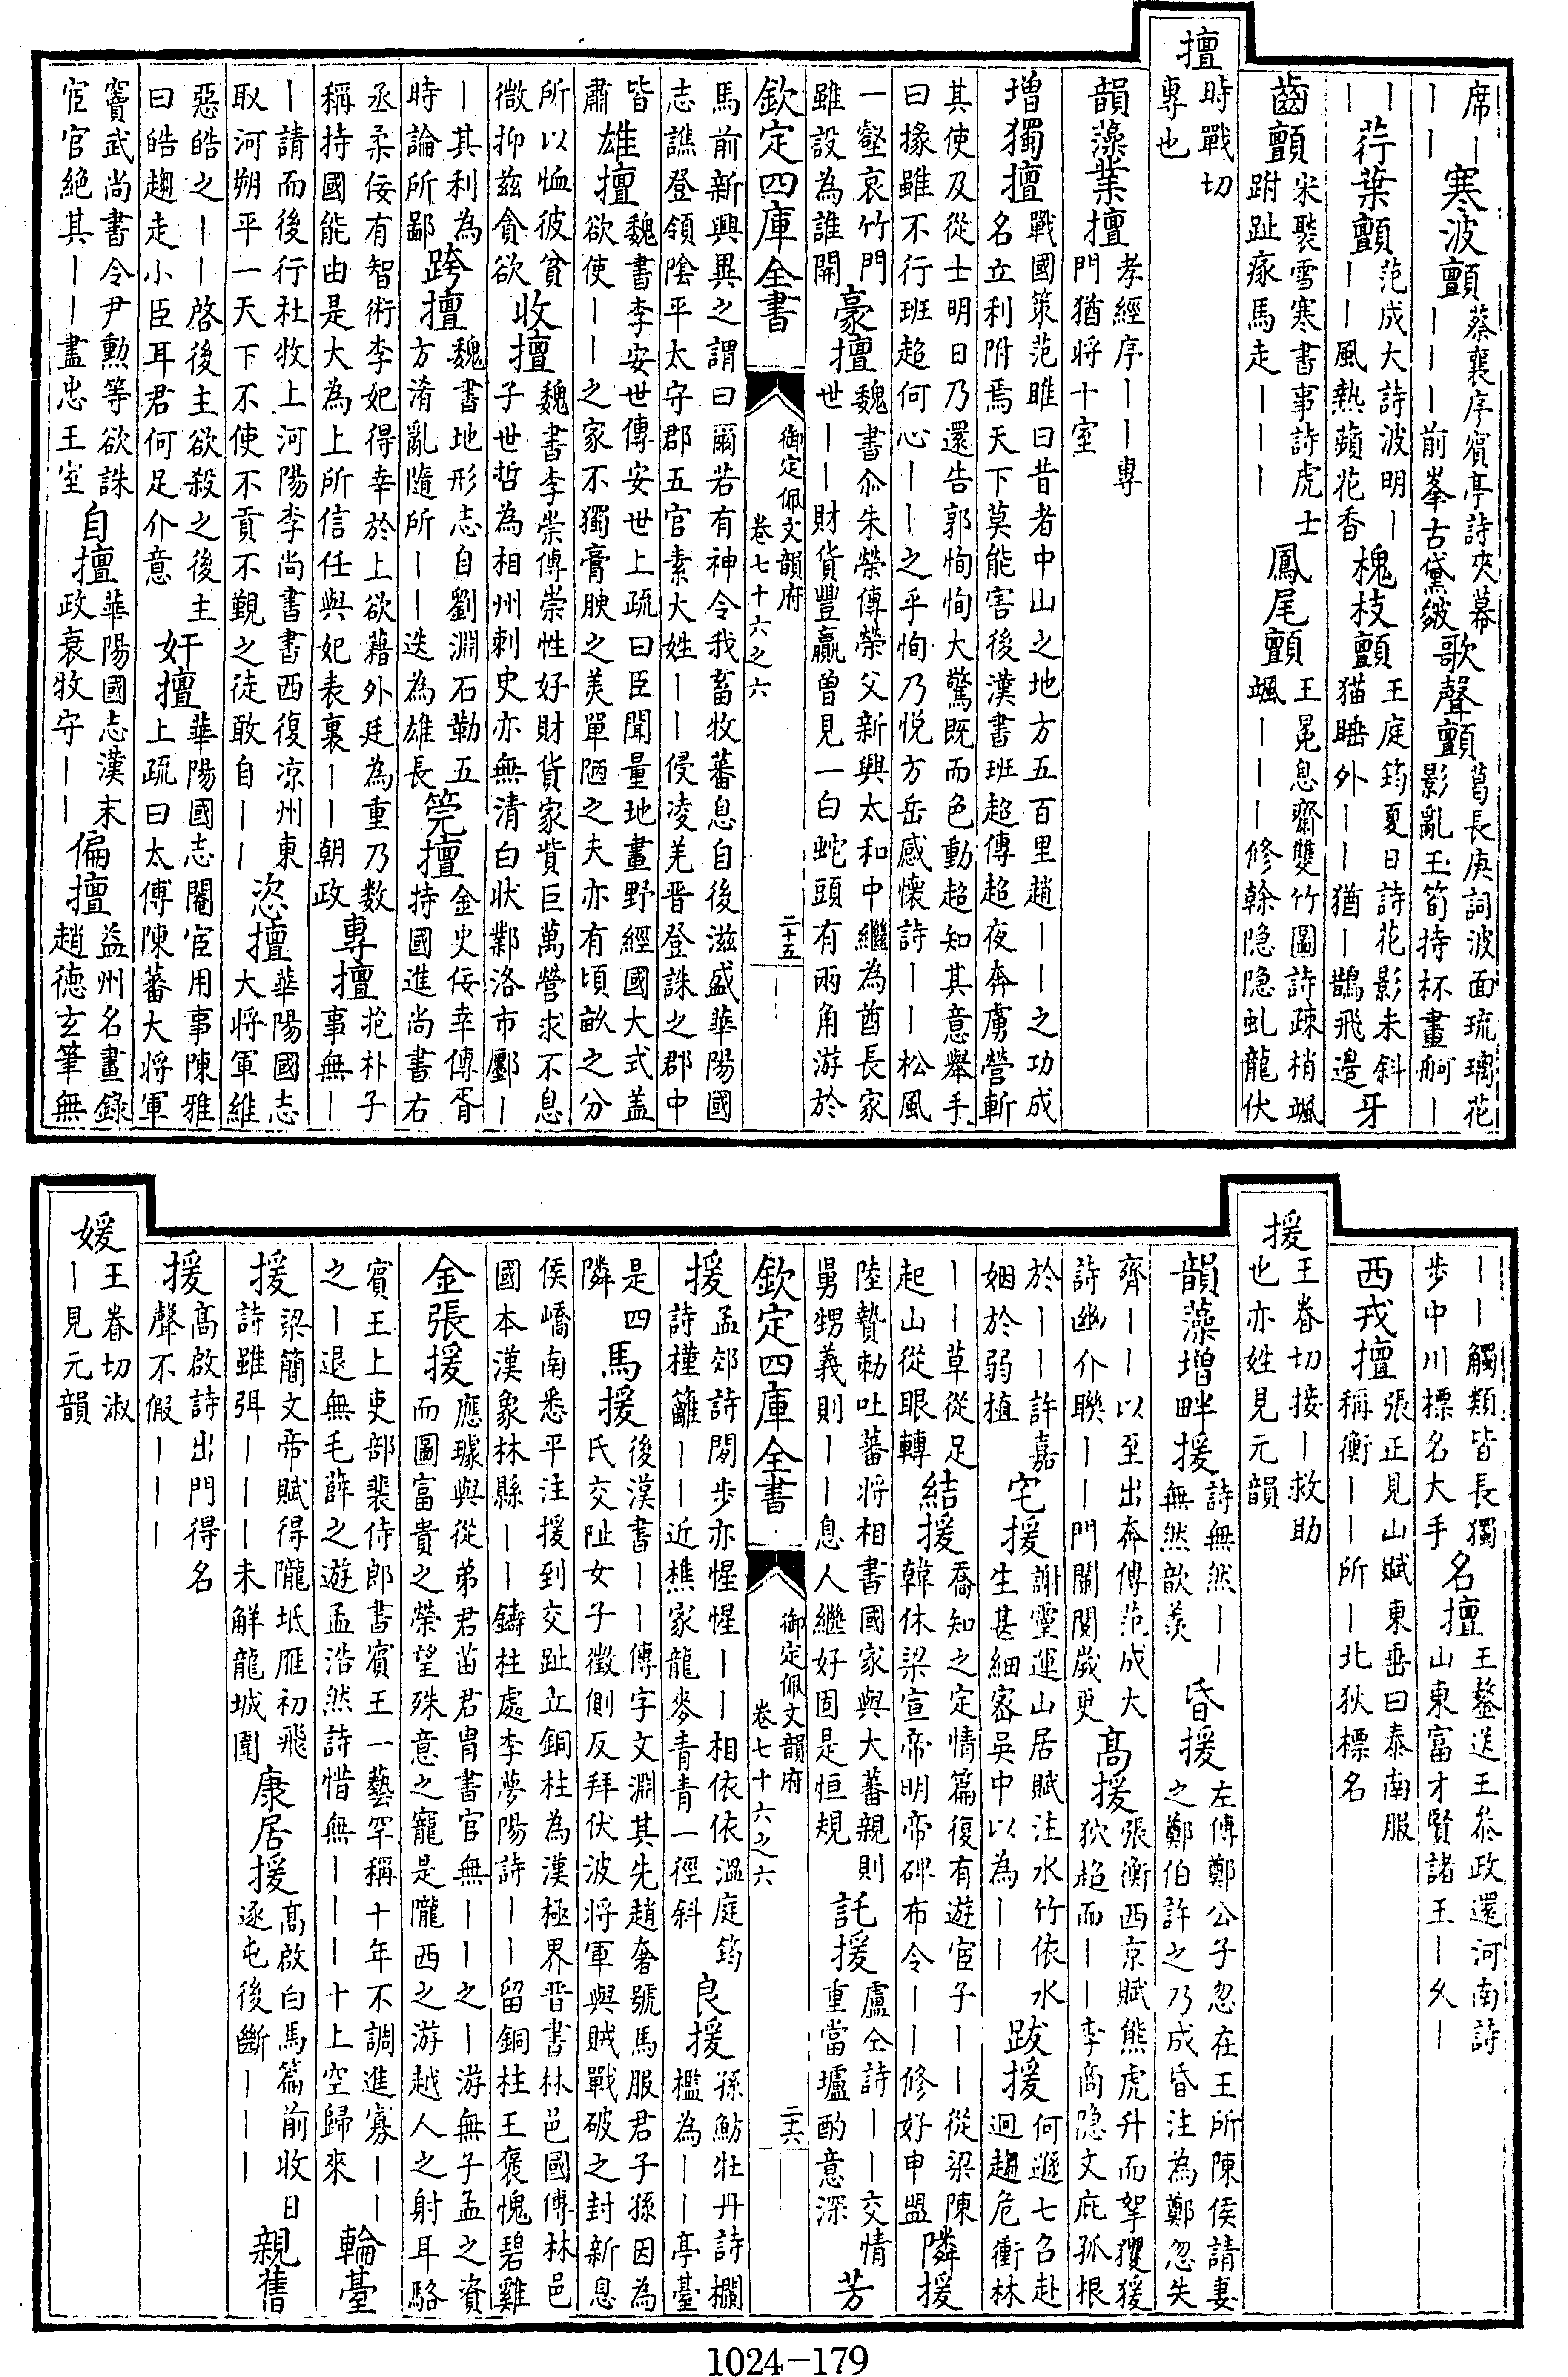 席｜｜｜寒波顫蔡襄序賓亭詩夾幕｜｜｜前峯古黛皴歌聲顫葛長庚詞波面琉璃花影亂玉筍持杯畫舸｜
｜｜荇葉顫范成大詩波明｜｜｜風熱蘋花香槐枝顫王庭筠夏日詩花影未斜猫睡外｜｜猶｜鵲飛邊牙
齒顫米襞雪寒書事詩虎士跗趾瘃馬走｜｜｜鳳尾顫王冕息齋雙竹圖詩疎梢颯颯｜｜｜修幹隐隐虬龍伏
擅時戰切專也
韻藻業擅孝經序｜｜專門猶將十室
增獨擅戰國策范雎曰昔者中山之地方五百里趙｜｜之功成名立利附焉天下莫能害後漢書班超傳超夜奔虜營斬
其使及從士明日乃還告郭恂恂大驚既而色動超知其意舉手曰掾雖不行班超何心｜｜之乎恂乃悦方岳感懷詩｜｜松風
一壑哀竹門雖設為誰開豪擅魏書尒朱榮傳榮父新興太和中繼為酋長家世｜｜財貨豐贏曾見一白蛇頭有兩角游於
欽定四庫全書 御定佩文韻府 卷七十六之六 二十五
馬前新興異之謂曰爾若有神令我畜牧蕃息自後滋盛華陽國志譙登領隂平太守郡五官素大姓｜｜侵凌羌晉登誅之郡中
皆肅雄擅魏書李安世傳安世上疏曰臣聞量地畫野經國大式盖欲使｜｜之家不獨膏腴之美單陋之夫亦有頃畝之分
所以恤彼貧微抑兹貪欲收擅魏書李崇傳崇性好財貨家貲巨萬營求不息子世哲為相州刺史亦無清白状鄴洛市鄽｜
｜其利為時論所鄙跨擅魏書地形志自劉淵石勒五方淆亂隨所｜｜迭為雄長筦擅金史佞幸傳胥持國進尚書右
丞柔佞有智術李妃得幸於上欲藉外廷為重乃数稱持國能由是大為上所信任與妃表裏｜｜朝政專擅抱朴子事無｜
｜請而後行杜牧上河陽李尚書書西復凉州東取河朔平一天下不使不貢不覲之徒敢自｜｜恣擅華陽國志大将軍維
惡皓之｜｜啓後主欲殺之後主曰皓趨走小臣耳君何足介意奸擅華陽國志閹宦用事陳雅上疏曰太傅陳蕃大将軍
竇武尚書令尹勲等欲誅宦官絶其｜｜盡忠王室自擅華陽國志漢末政衰牧守｜｜偏擅益州名畫録趙德玄筆無
｜｜觸類皆長獨步中川標名大手名擅王鏊送王叅政還河南詩山東富才賢諸王｜久｜
西戎擅張正見山賦東岳曰泰南服稱衡｜｜所｜北狄標名
援王眷切接｜救助也亦姓見元韻
韻藻增畔援詩無然｜｜無然歆羨昏援左傳鄭公子忽在王所陳侯請妻之鄭伯許之乃成昏注為鄭忽失
齊｜｜以至出奔傳范成大詩幽介聯｜｜門闌閱歲更高援張衡西京賦熊虎升而拏攫猨狖超而｜｜李商隐文庇孤根
於｜｜許嘉姻於弱植宅援謝靈運山居賦注水竹依水生甚細密吳中以為｜｜跋援何遜七召赴迥趨危衝林
｜｜草從足起山從眼轉結援喬知之定情篇復有遊宦子｜｜從梁陳韓休梁宣帝明帝碑布令｜｜修好申盟隣援
陸贄勅吐蕃将相書國家與大蕃親則舅甥義則｜｜息人繼好固是恒規託援盧仝詩｜｜交情重當壚酌意深芳
欽定四庫全書 御定佩文韻府 卷七十六之六 二十六
援孟郊詩閒步亦惺惺｜｜相依依温庭筠詩槿籬｜｜近樵家龍麥青青一徑斜良援孫魴牡丹詩欄檻為｜｜亭臺
是四隣馬援後漢書｜｜傳字文淵其先趙奢號馬服君子孫因為氏交阯女子徵側反拜伏波将軍與賊戰破之封新息
侯嶠南悉平注援到交趾立銅柱為漢極界晋書林邑國傳林邑國本漢象林縣｜｜鑄柱處李夢陽詩｜｜留銅柱王褒愧碧雞
金張援應璩與從弟君苗君胄書官無｜｜之｜游無子孟之資而圖富貴之榮望殊意之寵是隴西之游越人之射耳駱
賓王上吏部裴侍郎書賓王一藝罕稱十年不調進寡｜｜之｜退無毛薛之遊孟浩然詩惜無｜｜｜十上空歸來輪臺
援梁簡文帝賦得隴坻雁初飛詩雖弭｜｜｜未解龍城圍康居援高啟白馬篇前收日逐屯後斷｜｜｜親舊
援高啟詩出門得名聲不假｜｜｜
媛王眷切淑｜見元韻
1024-179